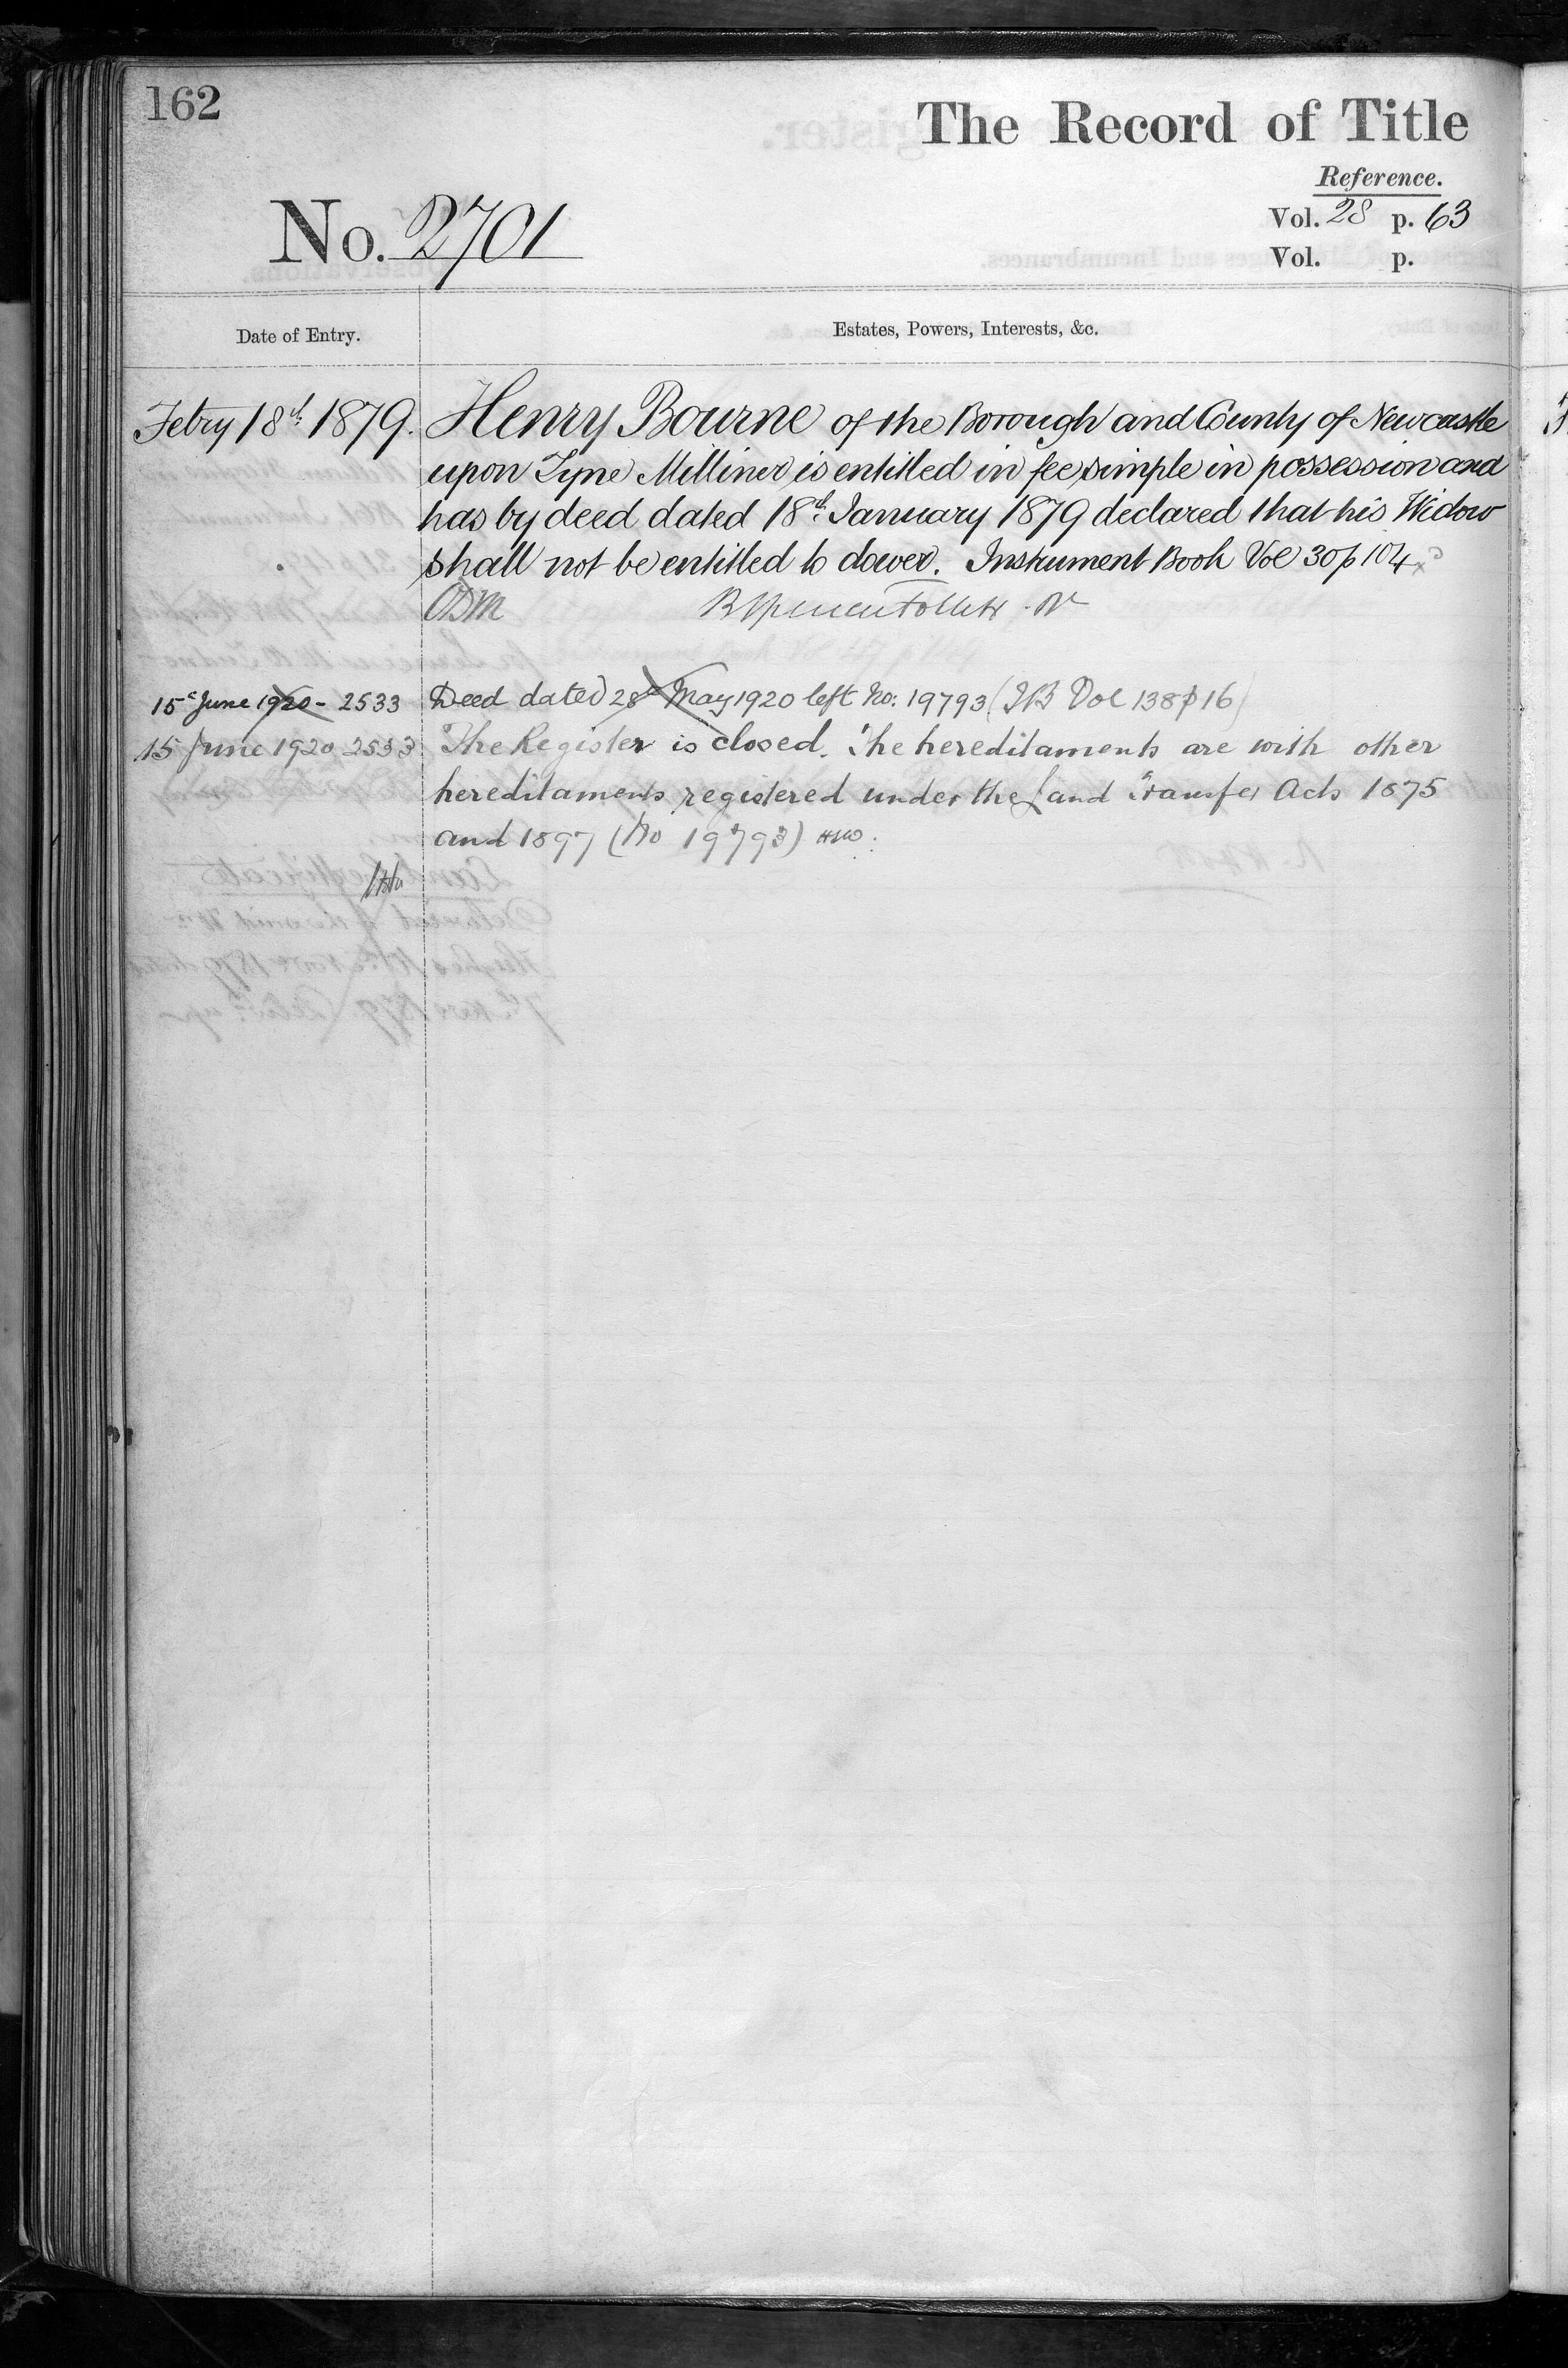 162
The Record of Title
Reference.
No. 2701
Vol. 28 p. 63
Vol. p.
Date of Entry.
Estates, Powers, Interests, &c.
Febry 18th 1879. Henry Bourne of the Borough and County of Newcastle
upon Tyne Milliner is entitled in fee simple in possession and
has by deed dated 18th January 1879 declared that his Widow
shall not be entitled to dower. Instrument Book Vol 30 p 104
15th June 1920 - 2533 Deed dated 28th May 1920 left No. 19793 (IB Vol 138 p 16)
15 June 1920 2533 The Register is closed. The hereditaments are with other
hereditaments registered under the Land Transfer Acts 1875
and 1897 (No 19793)